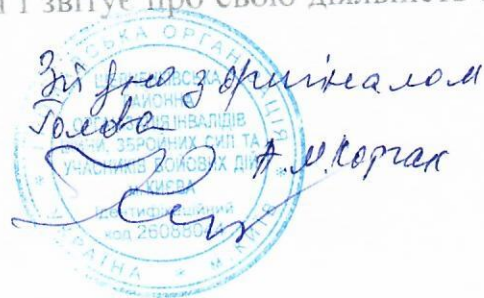 і звітує про свою діяльність
Згідно з оригіналом
Голова
А.М.Корчак
СЬКА ОРГАНІЗАЦІЯ
РАЙОННА
ІНВАЛІДІВ
ЗБРОЙНИХ СИЛ ТА
УЧАСНИКІВ БОЙОВИХ ДІЙ
КИЄВА
Ідентифікаційний
код
УКРАЇНА * М.